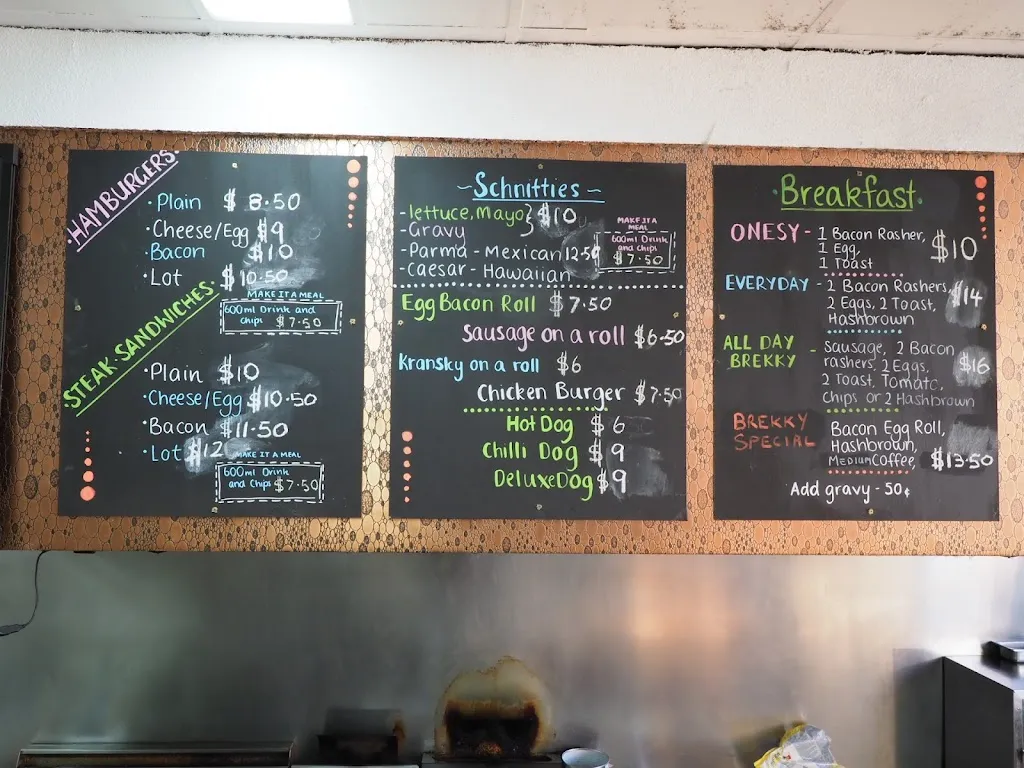 HAMBURGERS
• Plain $8.50
• Cheese/Egg $9
Bacon $10
• Lot $10.50
MAKE IT A MEAL
600ml Drink and
chips $7.50
STEAK SANDWICHES
• Plain $10
• Cheese/Egg $10.50
• Bacon $11.50
• Lot $12
MAKE IT A MEAL
600ml Drink
and Chips $7.50
~Schnitties~
- lettuce, Mayo } $10
- Gravy
- Parma - Mexican 12.50
- Caesar - Hawaiian
MAKE IT A
MEAL
600ml Drink
and chips
$7.50
Egg Bacon Roll $7.50
Sausage on a roll $6.50
Kransky on a roll $6
Chicken Burger $7.50
Hot Dog $6
Chilli Dog $9
Deluxe Dog $9
Breakfast
ONESY - 1 Bacon Rasher,
1 Egg,
1 Toast
$10
EVERYDAY - 2 Bacon Rashers,
2 Eggs, 2 Toast,
Hashbrown
$14
ALL DAY
BREKKY
- Sausage, 2 Bacon
rashers, 2 Eggs,
2 Toast, Tomato,
chips or 2 Hashbrown
$16
BREKKY
SPECIAL
Bacon Egg Roll,
Hashbrown,
MEDIUM Coffee, $13.50
Add gravy - 50¢